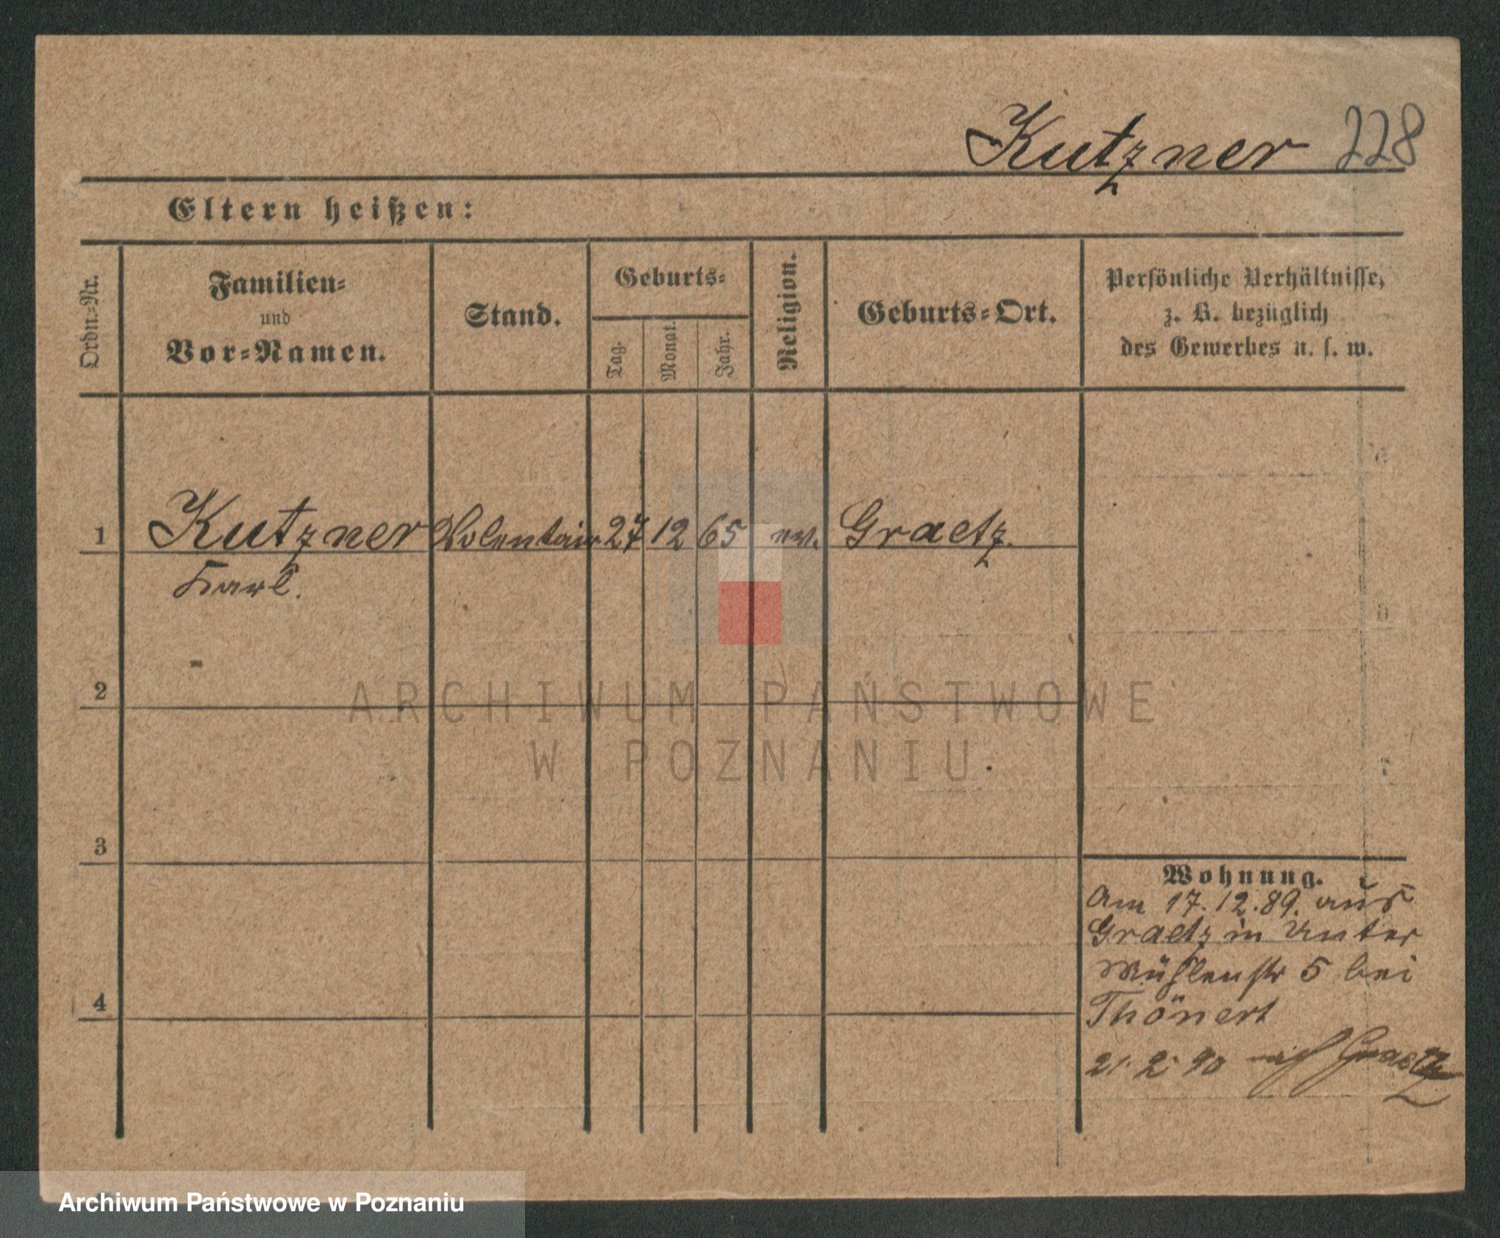 Kutzner 228
Eltern heißen:
Ordn.-Nr.
Familien-
und
Vor-Namen.
Stand.
Geburts-
Tag.
Monat.
Jahr.
Religion.
Geburts-Ort.
Persönliche Verhältnisse,
z. B. bezüglich
des Gewerbes u. s. w.
1 Kutzner Volentair 27 12 65 ev. Graetz.
Karl.
2
3
4
Wohnung.
Am 17.12.89. aus
Graetz in Unter
Mühlenstr 5 bei
Thönert
21.2.90 nach Graetz
ARCHIWUM PAŃSTWOWE
W POZNANIU
Archiwum Państwowe w Poznaniu